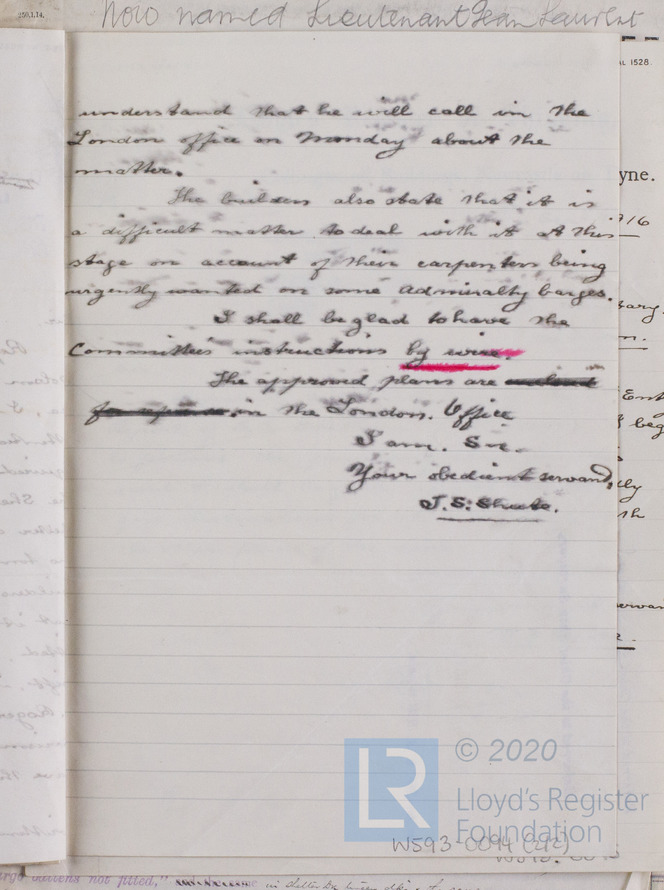 25.9.1.14.
Now named Lieutenant Jean Laurent
understand that he will call in the
London office on Monday about the
matter.
The builders also state that it is
a difficult matter to deal with it at this
stage on account of their carpenters being
urgently wanted on some Admiralty barges.
I shall be glad to have the
Committee's instructions by wire.
The approved plans are
in the London. Office
I am. Sir.
Your obedient servant,
J. S: Shute.
1528.
yne.
beg
© 2020
LR
Lloyd's Register
Foundation
W593-0094 (2/2)
argo battens not fitted,"